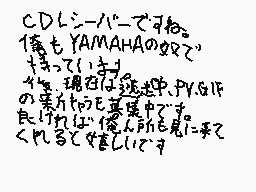 CDレシーバーですね。
俺もYAMAHAの奴で
持っています
今、現在は逃走中、PV、GIF
の案行わらを募集中です。
良ければ俺ん所も見に来て
くれると嬉しいです